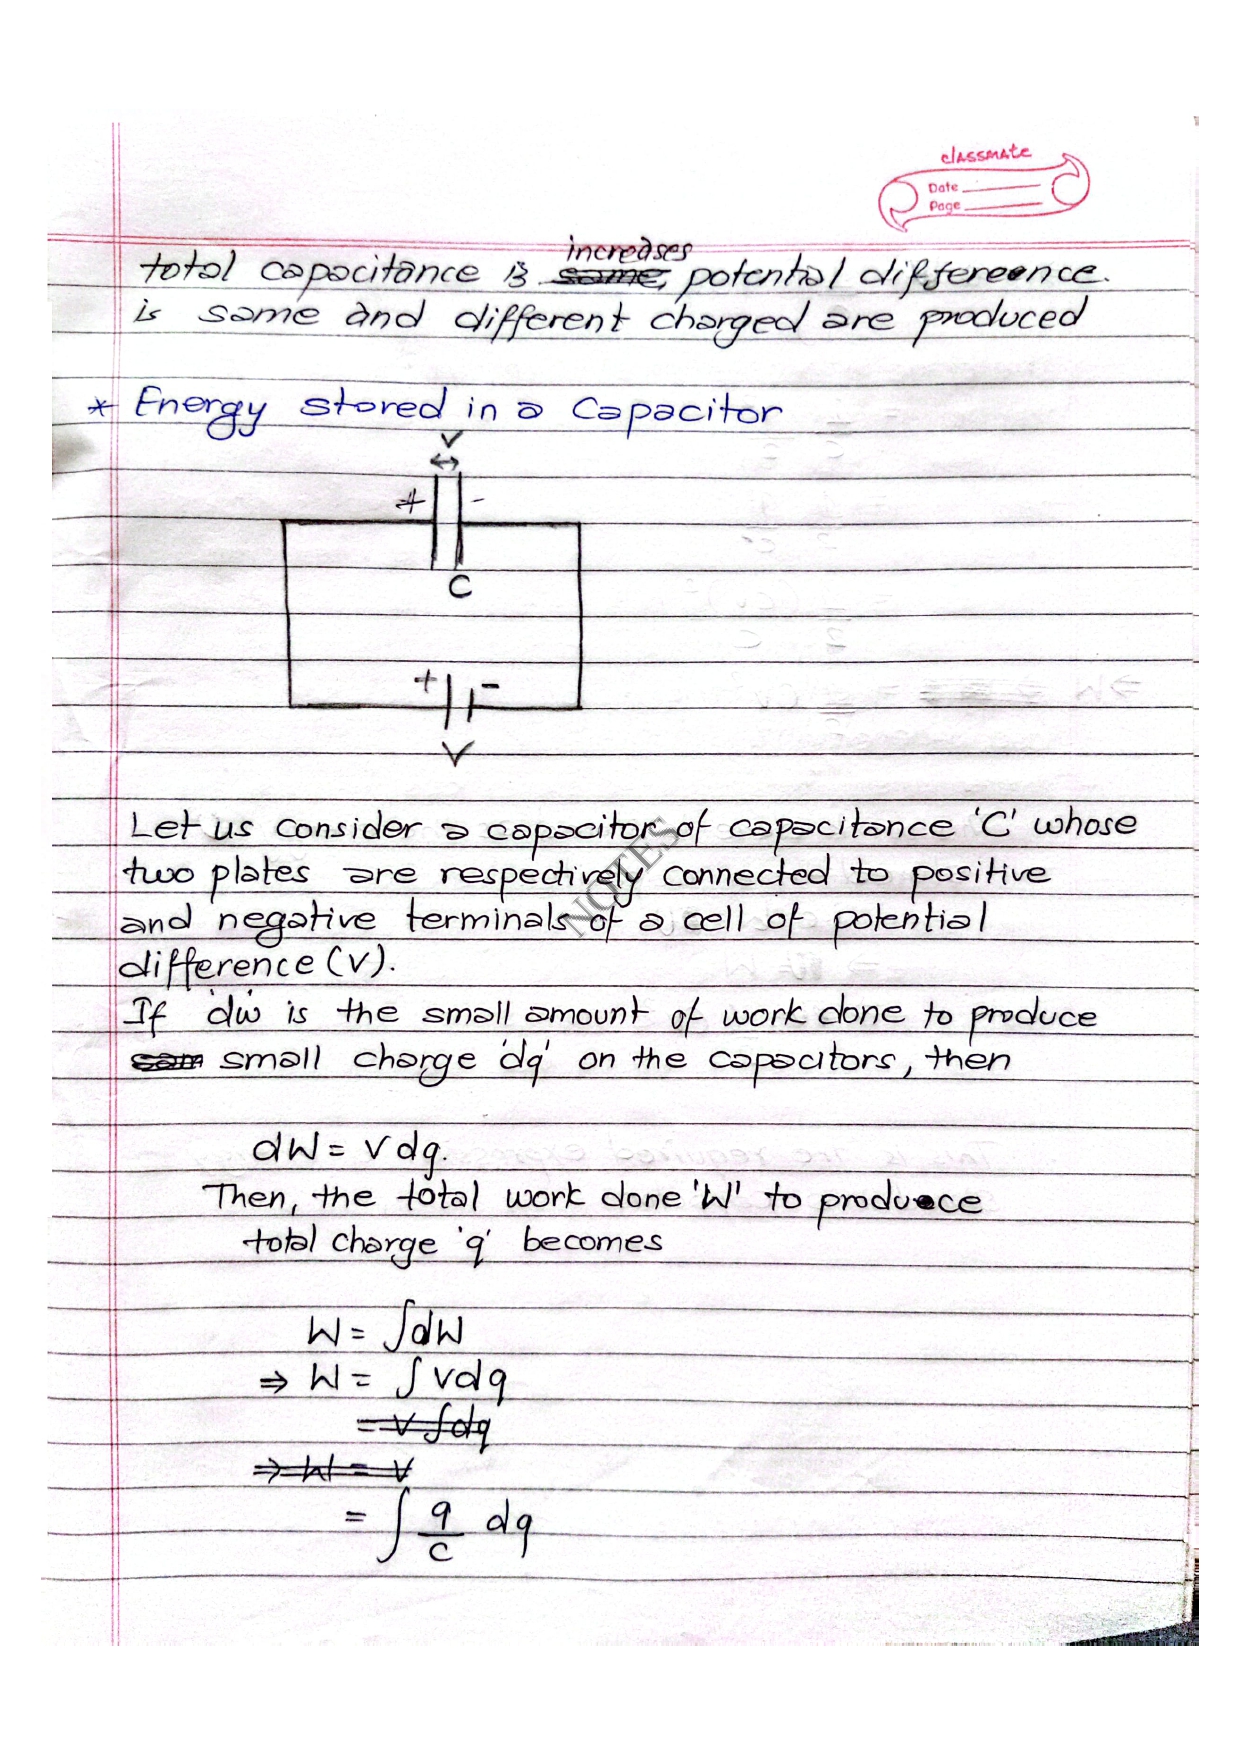 classmate
Date
Page
increases
total capacitance is same, potential differeence.
is same and different charged are produced
* Energy stored in a Capacitor
V
+ -
C
+ -
V
Let us consider a capacitor of capacitance 'C' whose
two plates are respectively connected to positive
and negative terminals of a cell of potential
difference (V).
If 'dw' is the small amount of work done to produce
sam small charge 'dq' on the capacitors, then
dW = Vdq.
Then, the total work done 'W' to produce
total charge 'q' becomes
W = ∫dW
⇒ W = ∫Vdq
= V∫dq
⇒ W = V
= ∫ q/c dq
NOTES